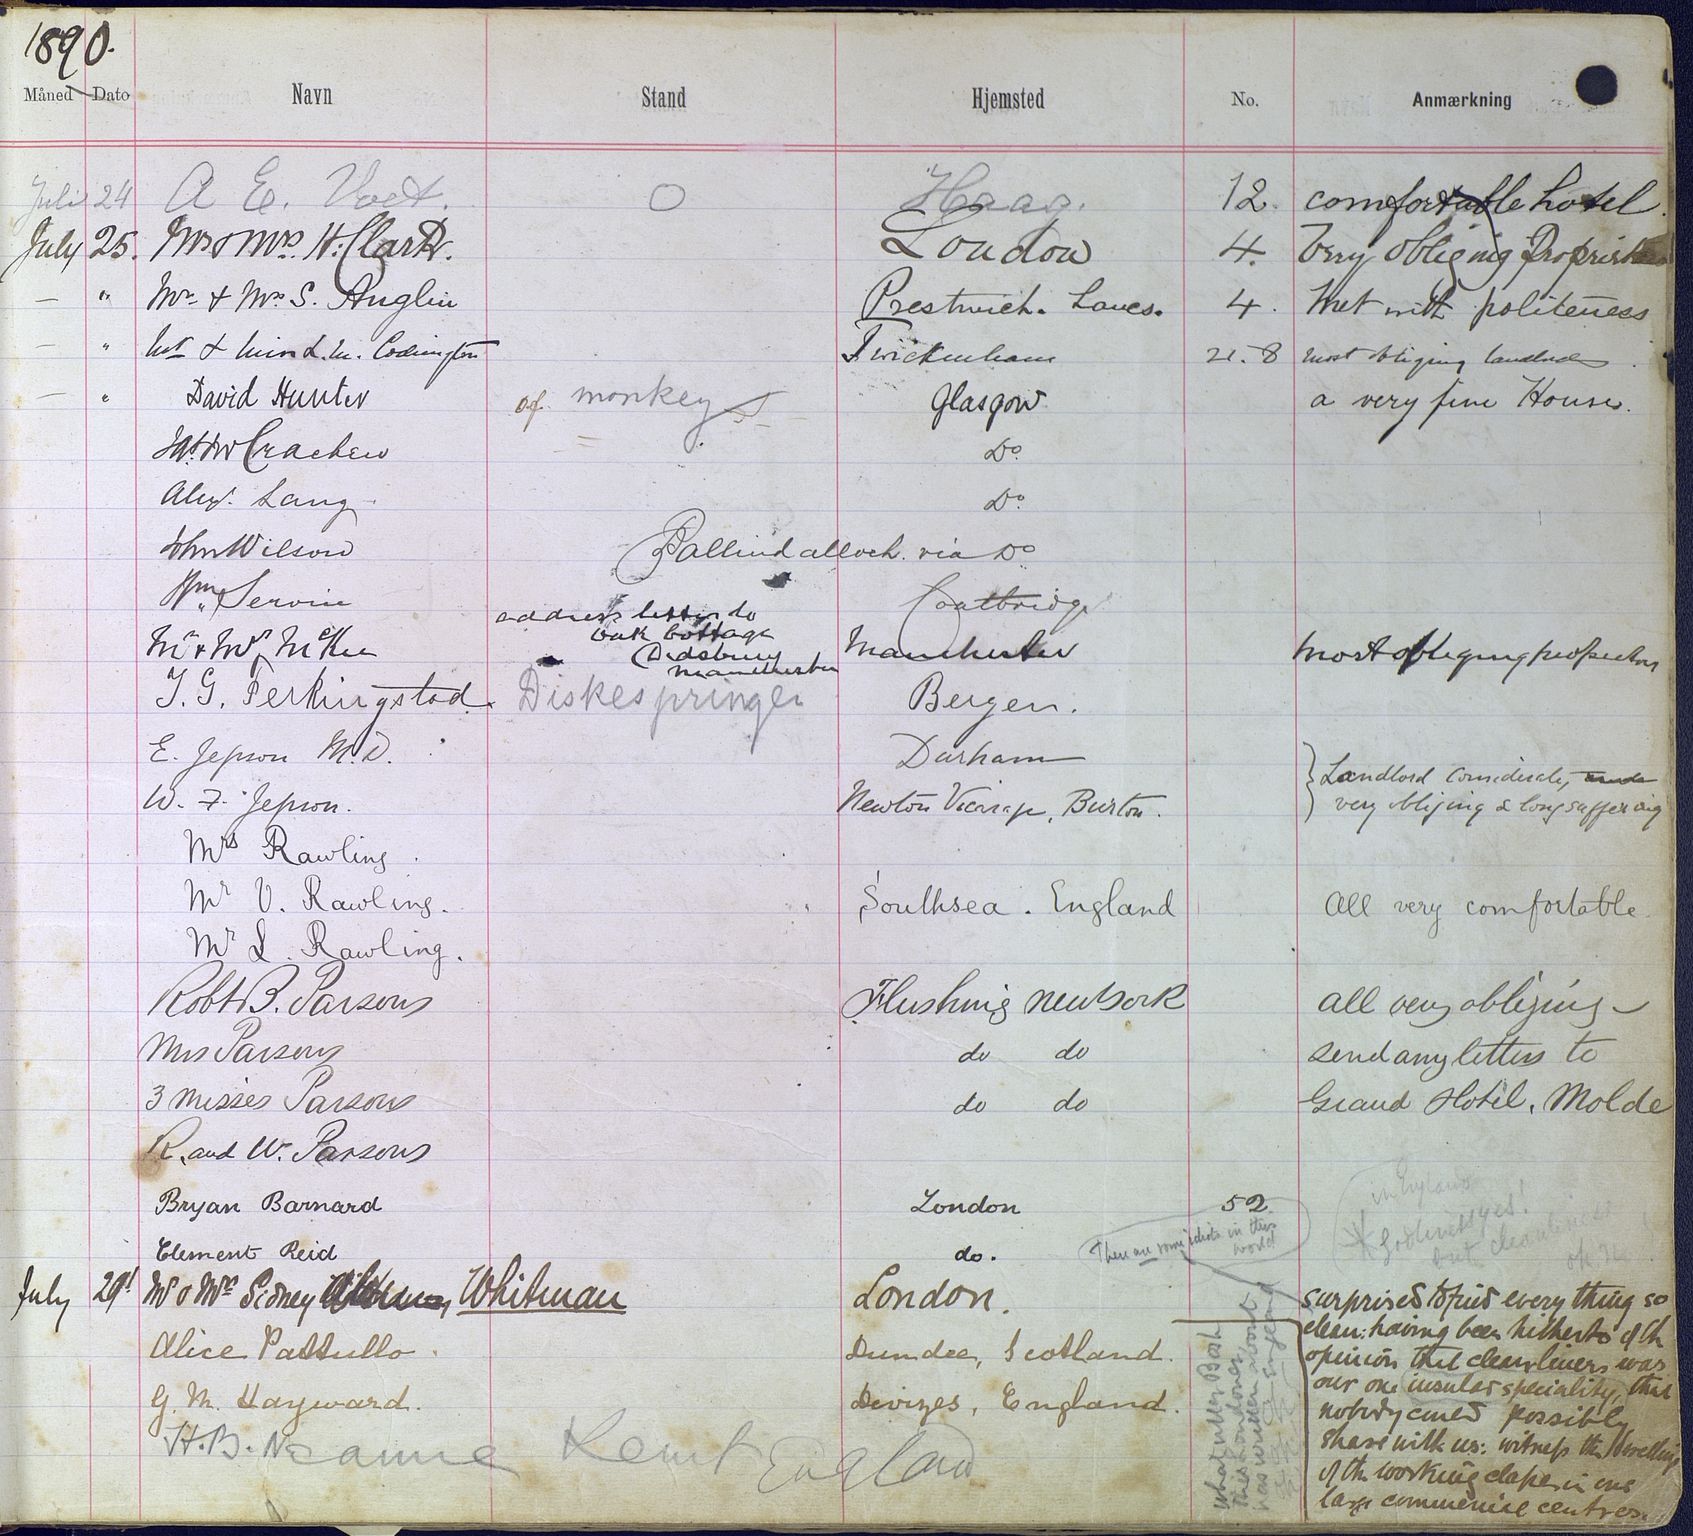 1890.
Måned Dato Navn Stand Hjemsted No. Anmærkning
Juli 24 A E. Voet. O Haag. 12. comfortable hotel.
July 25. Mr & Mrs. H. Clark. London 4. Very obliging Proprietor
— " Mr & Mrs S. Anglin Prestwich. Lancs. 4. Met with politeness
— " & L. M. Codrington Twickenham 21. 8 most obliging landlord
— " David Hunter of monkey Glasgow a very fine House.
Crachen Do
Alexr. Lang Do
John Wilson Ballindalloch via Do
Wm. Servin Coatbridge
address letter to
oak Cottage
Mr & Mrs McKee Didsbury Manchester most obliging
Manchester
T. G. Ferkingstad. Diskespringer Bergen.
E. Jepson M.D. Durham
} Landlord considerate,
W. F. Jepson. Newton Vicarage, Burton. very obliging & long suffering
Mrs Rawling.
Mr V. Rawling. Southsea. England All very comfortable
Mr L. Rawling.
Robt B. Parsons Flushing New York all very obliging —
Mrs Parsons do do send any letters to
3 Misses Parsons do do Grand Hotel. Molde
R. and W. Parsons
in England
Bryan Barnard London 52
godliness yes!
There are some idiots in this
world
but cleanliness
Clement Reid do.
July 29t Mr & Mrs Sidney Whitman London. surprised to find every thing so
clean: having been hitherto of the
Alice Pattullo. Dundee, Scotland. opinion that cleanliness was
our one insular speciality, that
G. M. Hayward. Devizes, England. nobody could possibly
H. B. Kent England share with us: witness the dwellings
of the working classes in our
large commercial centres.
What utter Bosh
this
has written about
England